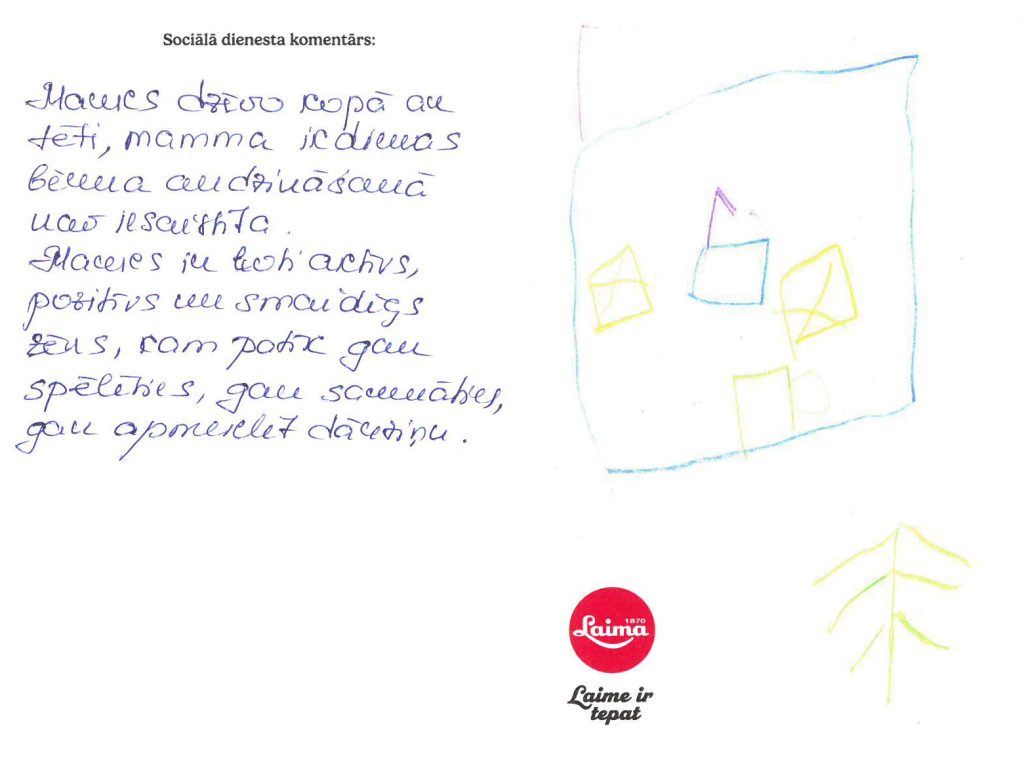 Sociālā dienesta komentārs:
dzīvo kopā ar
tēti, mamma ikdienas
bērna audzināšanā
nav iesaistīta.
ir ļoti aktīvs,
pozitīvs un smaidīgs
zēns, kam patīk gan
spēlēties, gan sarunāties,
gan apmeklēt dārziņu.
Laima
1870
Laime ir
tepat